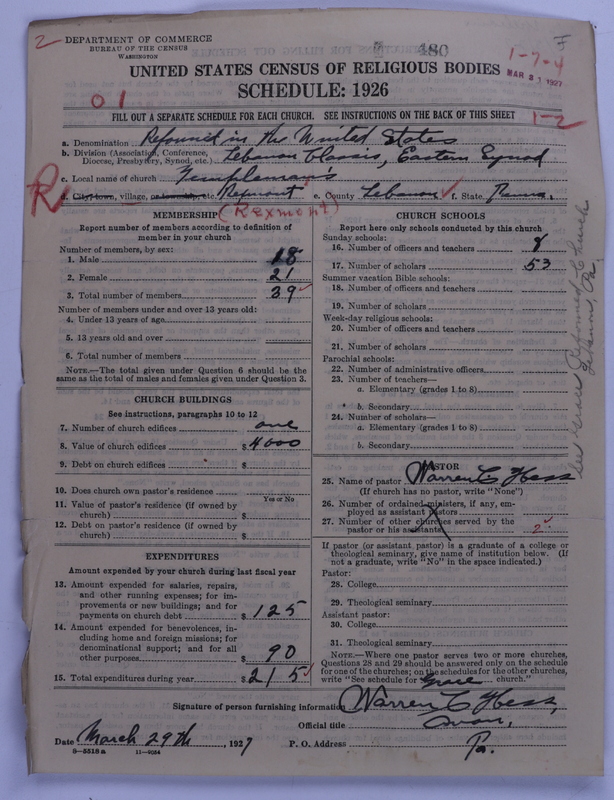 2 DEPARTMENT OF COMMERCE
BUREAU OF THE CENSUS
WASHINGTON
480
1-7-4
MAR 31 1927
UNITED STATES CENSUS OF RELIGIOUS BODIES
SCHEDULE: 1926
0 1
FILL OUT A SEPARATE SCHEDULE FOR EACH CHURCH. SEE INSTRUCTIONS ON THE BACK OF THIS SHEET
1-2
a. Denomination Reformed in the United States
b. Division (Association, Conference, Diocese, Presbytery, Synod, etc.) Lebanon Classis, Eastern Synod
c. Local name of church Templeman's
R d. City, town, village, or township, etc. Rexmont e. County Lebanon ✓ f. State Penna.
(Rexmont)
MEMBERSHIP
Report number of members according to definition of
member in your church
Number of members, by sex:
1. Male 18
2. Female 21
3. Total number of members 39 ✓
Number of members under and over 13 years old:
4. Under 13 years of age
5. 13 years old and over
6. Total number of members
NOTE.—The total given under Question 6 should be the
same as the total of males and females given under Question 3.
CHURCH BUILDINGS
See instructions, paragraphs 10 to 12
7. Number of church edifices one
8. Value of church edifices $4000
9. Debt on church edifices $
10. Does church own pastor's residence
Yes or No
11. Value of pastor's residence (if owned by
church) $
12. Debt on pastor's residence (if owned by
church) $
EXPENDITURES
Amount expended by your church during last fiscal year
13. Amount expended for salaries, repairs,
and other running expenses; for im-
provements or new buildings; and for
payments on church debt $125
14. Amount expended for benevolences, in-
cluding home and foreign missions; for
denominational support; and for all
other purposes $90
15. Total expenditures during year $215 ✓
CHURCH SCHOOLS
Report here only schools conducted by this church
Sunday schools:
16. Number of officers and teachers 8
17. Number of scholars 53
Summer vacation Bible schools:
18. Number of officers and teachers
19. Number of scholars
Week-day religious schools:
20. Number of officers and teachers
21. Number of scholars
Parochial schools:
22. Number of administrative officers
23. Number of teachers—
a. Elementary (grades 1 to 8)
b. Secondary
24. Number of scholars—
a. Elementary (grades 1 to 8)
b. Secondary
PASTOR
25. Name of pastor Warren C Hess
(If church has no pastor, write "None")
26. Number of ordained ministers, if any, em-
ployed as assistant pastors
27. Number of other churches served by the
pastor or his assistants 2
If pastor (or assistant pastor) is a graduate of a college or
theological seminary, give name of institution below. (If
not a graduate, write "No" in the space indicated.)
Pastor:
28. College
29. Theological seminary
Assistant pastor:
30. College
31. Theological seminary
NOTE.—Where one pastor serves two or more churches,
Questions 28 and 29 should be answered only on the schedule
for one of the churches; on the schedules for the other churches,
write "See schedule for Grace church."
See Grace Reformed Church
Lebanon, Pa.
Signature of person furnishing information Warren C Hess,
Official title
Date March 29th, 1927 P. O. Address Avon, Pa.
5-5518a 11-9054